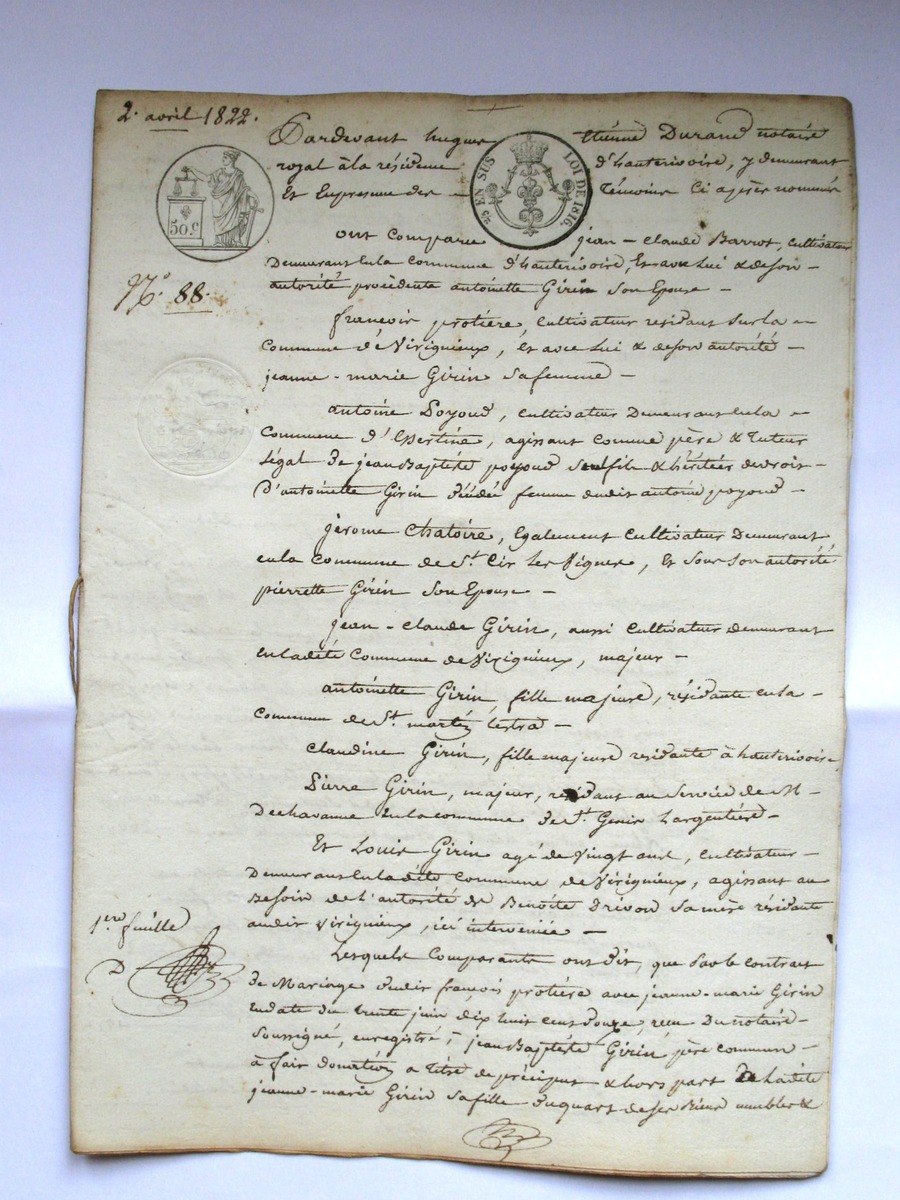 2. avril 1822.
Pardevant hugues Etienne Durand notaire
royal à la résidence d'hauterivoire, y demeurant
Et En presence des témoins Ci après nommés
25 EN SUS LOI DE 1816.
50 c.
N.o 88.
ont Comparu jean-Claude Barrot, Cultivateur
Demeurant En la Commune d'hauterivoire, Et avec Lui & de son -
autorité procédente antoinette Girin Son Epouse -
françois protière, Cultivateur residant sur la -
Commune de Virigneux, et avec Lui & de son autorité -
jeanne-marie Girin sa femme -
antoine poyoud, Cultivateur Demeurant En la -
Commune d'Essertine, agissant Comme père & tuteur
Légal De jean Baptiste poyoud Son fils & héritier de droit -
D'antoinette Girin décédée femme dudit antoine poyoud -
jérome Chatoire, Egalement Cultivateur Demeurant
en la Commune de St. Cir Les Vignes, Et Sous Son autorité
pierrette Girin Son Epouse -
jean-Claude Girin, aussi Cultivateur demeurant
En ladite Commune de Virigneux, majeur -
antoinette Girin, fille majeure, résidante en la -
Commune de St. martin Lestra -
Claudine Girin, fille majeure residante à hauterivoire,
Pierre Girin, majeur, residant au Service de M -
Dechavanne En la commune de St. Genis L'argentière -
Et Louis Girin agé de Vingt ans, Cultivateur -
Demeurant En ladite Commune de Virigneux, agissant au
Besoin de L'autorité de Benoite Drivon Sa mère résidante
audit Virigneux, ici intervenue -
1ere feuille
D
Lesquels Comparants ont dit, que par le contrat
de Mariage dudit françois protière avec jeanne-marie Girin
En date du trente juin dix huit cent douze, recu Du notaire -
Soussigné, enregistré, jean Baptiste Girin, père commun -
à fait donation a titre de préciput & hors part De Ladite
jeanne-marie Girin Sa fille Du quart de ses Biens meubles &